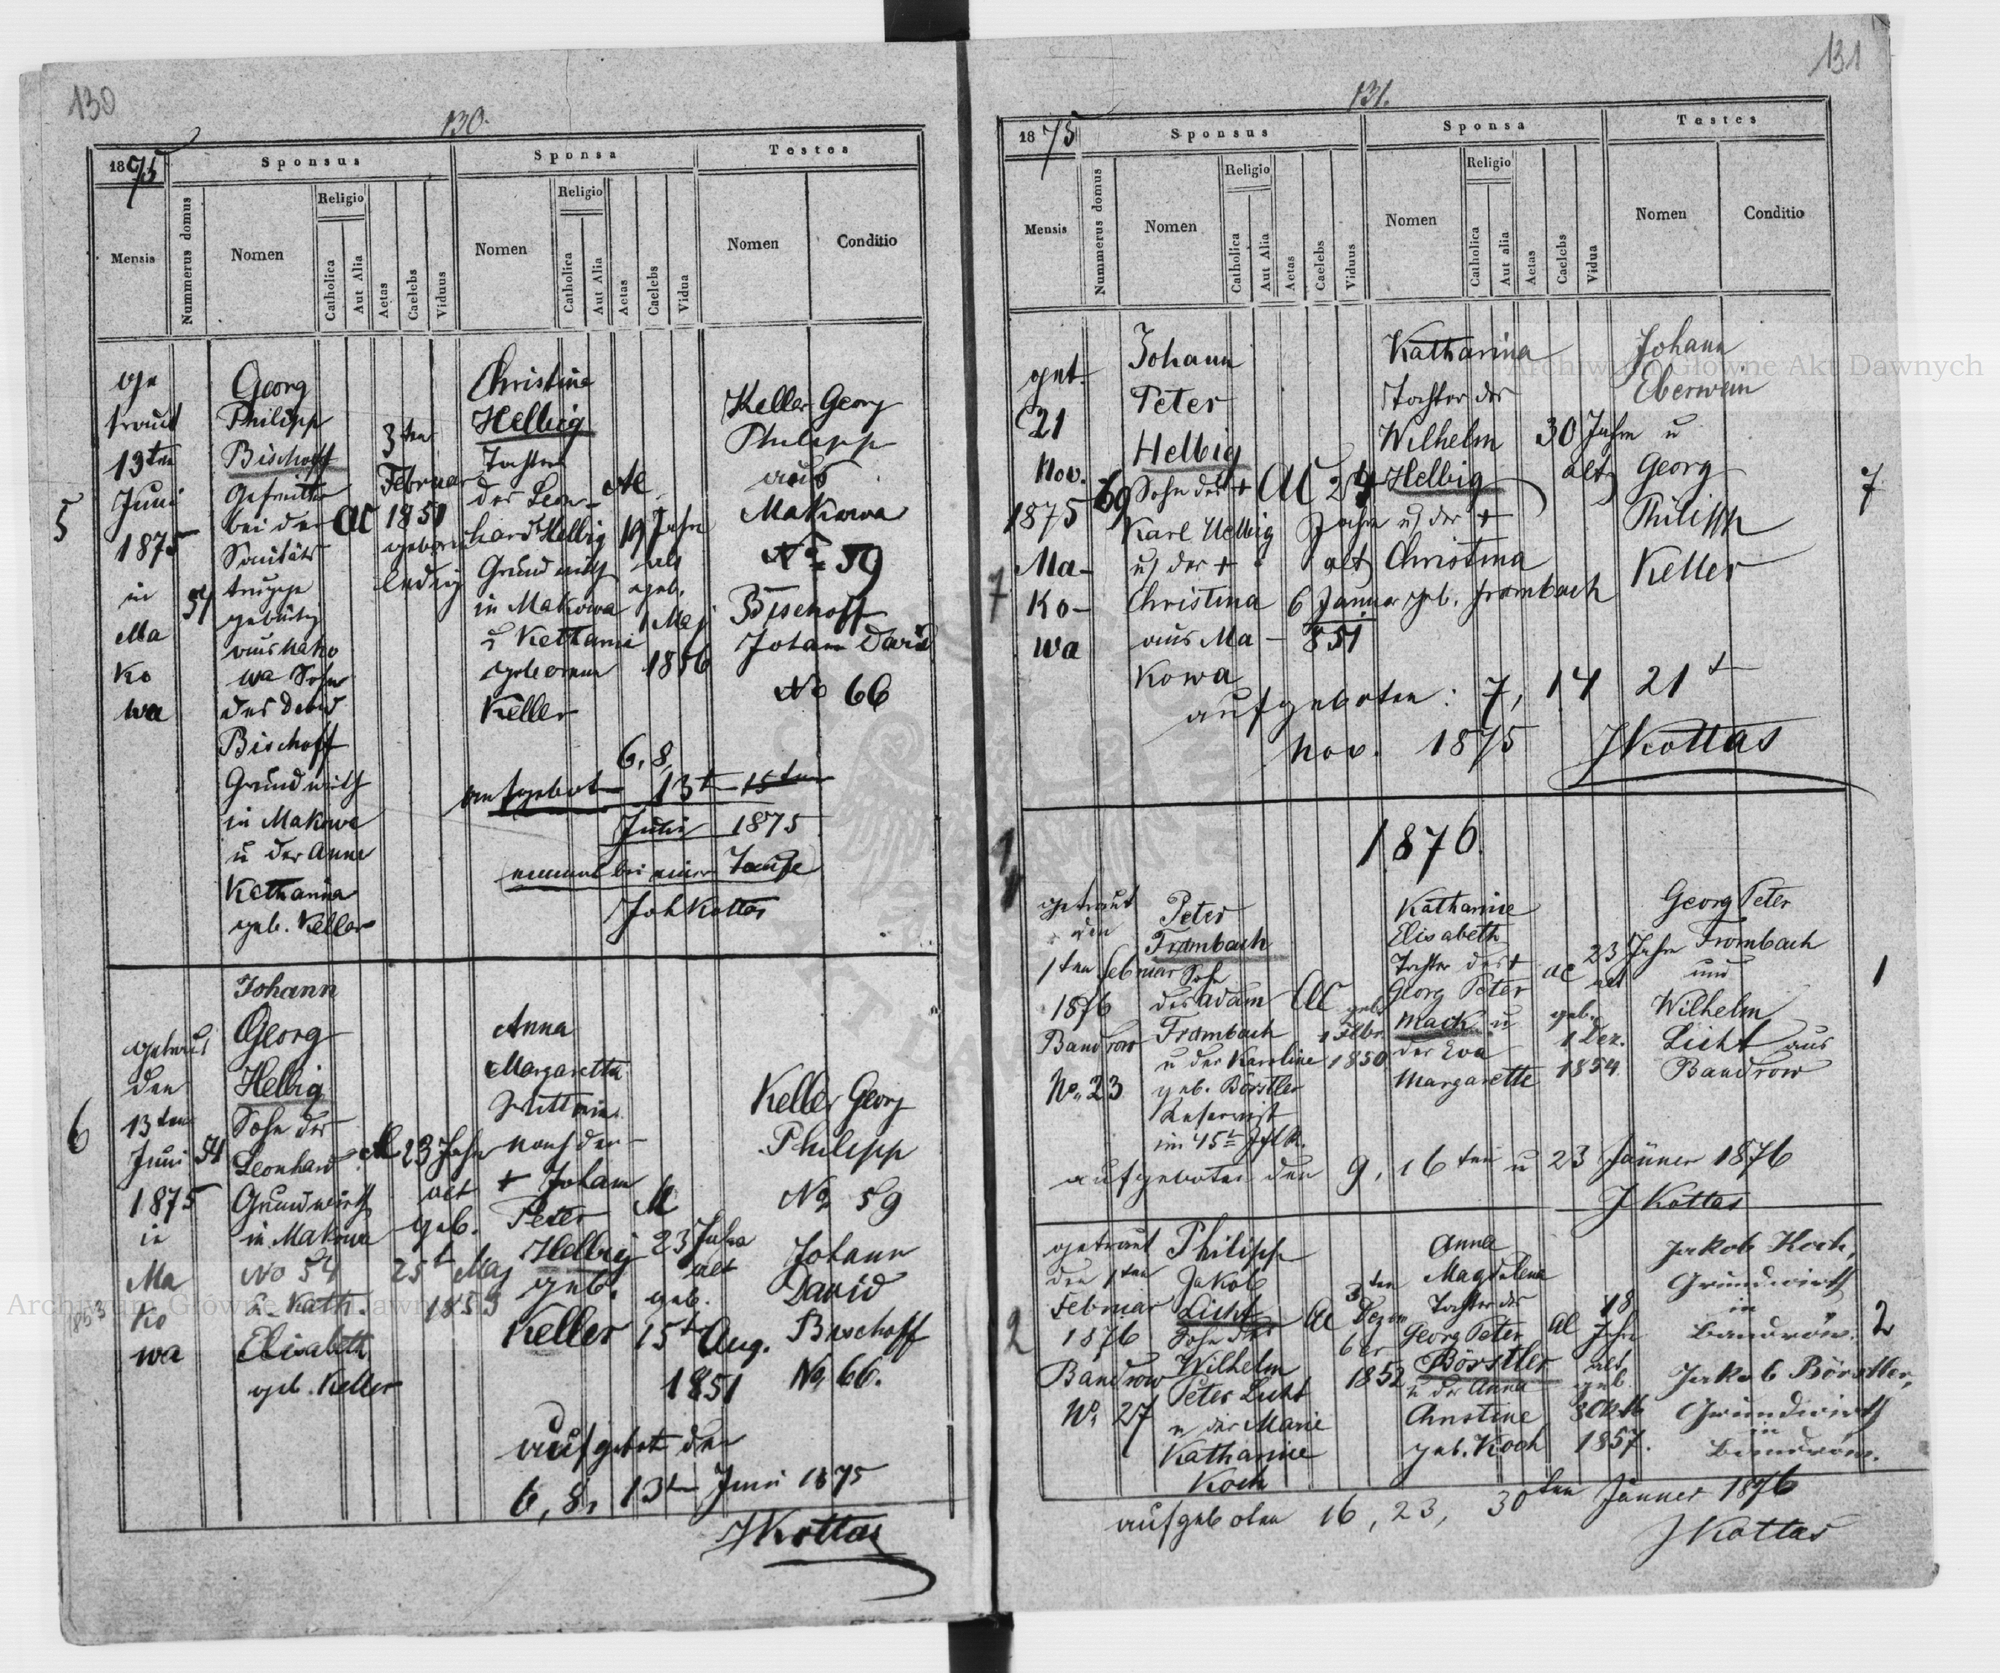 130
130.
1875
Sponsus
Sponsa
Testes
Mensis
Nummerus domus
Nomen
Religio
Catholica
Aut Alia
Aetas
Caelebs
Viduus
Nomen
Religio
Catholica
Aut Alia
Aetas
Caelebs
Vidua
Nomen
Conditio
5
ge
traut
13ten
Juni
1875
in
Ma
Ko
wa
54
Georg
Philipp
Bischoff
Gefreiter
bei der
Sanitäts
truppe
gebürtig
aus Mako
wa Sohn
des David
Bischoff
Grundwirth
in Makowa
u der Anna
Katharina
geb. Keller
AC
3ten
Februar
1851
geboren
ledig
Christine
Helbig
Tochter
des Leon-
hard Helbig
Grundwirth
in Makowa
u Katharina
geborene
Keller
AC
19 Jahre
alt
geb.
1 Maj
1856
Keller Georg
Philipp
aus
Makowa
No 59
Bischoff
Johann David
No 66
6, 8,
aufgebot 13t 15ten
Juni 1875
einmal bei einer Taufe
Joh Kottas
6
getraut
den
13ten
Juni
1875
in
Ma
Ko
wa
54
Johann
Georg
Helbig
Sohn des
Leonhard
Grundwirth
in Makowa
No 54
u. Kath.
Elisabeth
geb. Keller
AC
23 Jahre
alt
geb.
25t Maj
1853
1853
Anna
Margaretta
Wittwe
nach dem
+ Johann
Peter
Helbig
geb.
Keller
AC
23 Jahre
alt
geb.
15t Aug.
1851
Keller Georg
Philipp
No 59
Johann
David
Bischoff
No 66.
aufgebot den
6, 8, 13ten Juni 1875
JKottas
131
131.
1875
Sponsus
Sponsa
Testes
Mensis
Nummerus domus
Nomen
Religio
Catholica
Aut Alia
Aetas
Caelebs
Viduus
Nomen
Religio
Catholica
Aut alia
Aetas
Caelebs
Vidua
Nomen
Conditio
7
get.
21
Nov.
1875
Ma-
Ko-
wa
69
Johann
Peter
Helbig
Sohn des +
Karl Helbig
u der +
Christina
aus Ma-
Kowa
AC
24
Jahre
alt
6 Januar
851
Katharina
Tochter des
Wilhelm
Helbig
u der +
Christina
geb. Frombach
30 Jahre
alt
Johann
Eberwein
u
Georg
Philipp
Keller
7
aufgeboten: 7, 14 21t
Nov. 1875 JKottas
1876.
1
getraut
den
1ten Februar
1876
Bandrow
No. 23
Peter
Frombach
Sohn
des Adam
Frombach
u der Karoline
geb. Börstler
Reservist
im 45t
AC
geb.
1850
Katharine
Elisabeth
Tochter des +
Georg Peter
Mack u
der Eva
Margarette
AC
23 Jahre
alt
geb.
1 Dez.
1854.
Georg Peter
Frombach
und
Wilhelm
Licht aus
Bandrow
1
aufgeboten den 9, 16ten u 23 Jänner 1876
J Kottas
2
getraut
den 1ten
Februar
1876
Bandrow
No. 27
Philipp
Jakob
Licht
Sohn des
Wilhelm
Peter Licht
u der Marie
Katharine
Koch
AC
3ten
Dezem
ber
1852
Anna
Magdalena
Tochter des
Georg Peter
Börstler
u der Anna
Christine
geb. Koch
AC
18
Jahre
alt
geb.
1857.
Jakob Koch,
Grundwirth
in
Bandrów.
Jakob Börstler,
Grundwirth
in
Bandrów.
2
aufgeboten 16, 23, 30ten Jänner 1876
J Kottas
Archiwum Główne Akt Dawnych
Archiwum Główne Akt Dawnych